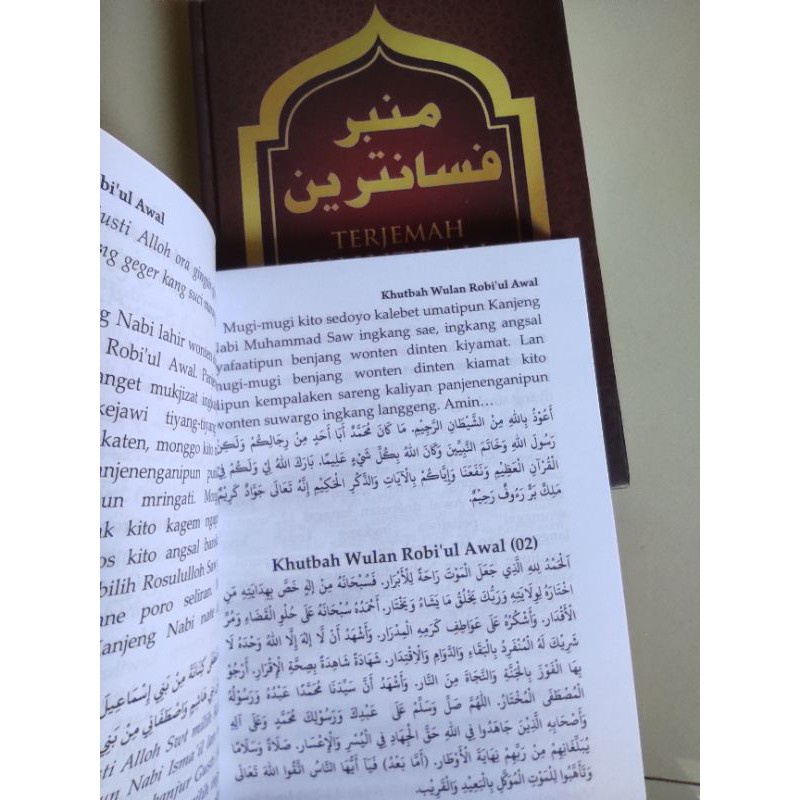 منبر
فسانترين
TERJEMAH
bi'ul Awal
usti Alloh ora
geger kang suci
Nabi lahir wonten
Robi'ul Awal.
anget mukjizat
kejawi tiyang-
katen, monggo kito
anjenenganipun
un mringati.
ak kito kagem
os kito angsal
bilih Rosululloh Saw
ane poro seliran.
Kanjeng Nabi
كِنَانَةَ مِنْ بَنِي إِسْمَاعِيلَ
وَاصْطَفَانِي مِنْ بَنِي
usti Alloh Swt milih
un Nabi Isma'il
banjur
Khutbah Wulan Robi'ul Awal
Mugi-mugi kito sedoyo kalebet umatipun Kanjeng
Nabi Muhammad Saw ingkang sae, ingkang angsal
yafaatipun benjang wonten dinten kiyamat. Lan
mugi-mugi benjang wonten dinten kiamat kito
dipun kempalaken sareng kaliyan panjenenganipun
wonten suwargo ingkang langgeng. Amin...
أَعُوْذُ بِاللهِ مِنَ الشَّيْطَانِ الرَّجِيْمِ. مَا كَانَ مُحَمَّدٌ أَبَا أَحَدٍ مِنْ رِجَالِكُمْ وَلَكِنْ
رَسُولَ اللهِ وَخَاتَمَ النَّبِيِّينَ وَكَانَ اللهُ بِكُلِّ شَيْءٍ عَلِيمًا. بَارَكَ اللهُ لِي وَلَكُمْ فِي
الْقُرْآنِ الْعَظِيْمِ وَنَفَعَنَا وَإِيَّاكُمْ بِالْآيَاتِ وَالذِّكْرِ الْحَكِيْمِ إِنَّهُ تَعَالَى جَوَّادٌ كَرِيْمٌ
مَلِكٌ بَرٌّ رَءُوفٌ رَحِيْمٌ.
Khutbah Wulan Robi'ul Awal (02)
اَلْحَمْدُ لِلهِ الَّذِي جَعَلَ الْمَوْتَ رَاحَةً لِلْأَبْرَارِ. فَسُبْحَانَهُ مِنْ إِلهٍ خَصَّ بِهِدَايَتِهِ مَنِ
اخْتَارَهُ لِوِلَايَتِهِ وَرَبُّكَ يَخْلُقُ مَا يَشَاءُ وَيَخْتَارُ. أَحْمَدُهُ سُبْحَانَهُ عَلَى حُلُوِ الْقَضَاءِ وَمُرِّ
الْأَقْدَارِ. وَأَشْكُرُهُ عَلَى عَوَاطِفِ كَرَمِهِ الْمِدْرَارِ. وَأَشْهَدُ أَنْ لَا إِلهَ إِلَّا اللهُ وَحْدَهُ لَا
شَرِيْكَ لَهُ الْمُنْفَرِدُ بِالْبَقَاءِ وَالدَّوَامِ وَالْاِقْتِدَارِ. شَهَادَةً شَاهِدَةً بِصِحَّةِ الْإِقْرَارِ. أَرْجُوْ
بِهَا الْفَوْزَ بِالْجَنَّةِ وَالنَّجَاةَ مِنَ النَّارِ. وَأَشْهَدُ أَنَّ سَيِّدَنَا مُحَمَّدًا عَبْدُهُ وَرَسُوْلُهُ
الْمُصْطَفَى الْمُخْتَارُ. اَللّٰهُمَّ صَلِّ وَسَلِّمْ عَلَى عَبْدِكَ وَرَسُوْلِكَ مُحَمَّدٍ وَعَلَى آلِهِ
وَأَصْحَابِهِ الَّذِيْنَ جَاهَدُوا فِي اللهِ حَقَّ الْجِهَادِ فِي الْيُسْرِ وَالْإِعْسَارِ. صَلَاةً وَسَلَامًا
يُبَلِّغَانِهِمْ مِنْ رَبِّهِمْ نِهَايَةَ الْأَوْطَارِ. (أَمَّا بَعْدُ) فَيَا أَيُّهَا النَّاسُ اتَّقُوا اللهَ تَعَالَى
وَتَأَهَّبُوا لِلْمَوْتِ الْمُوَكَّلِ بِالْبَعِيْدِ وَالْقَرِيْبِ.